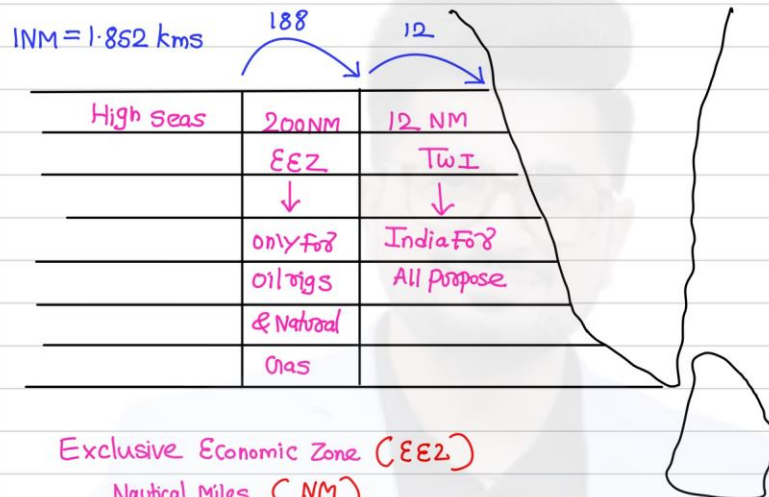 188
12
1NM = 1.852 kms
High seas
200NM
12 NM
EEZ
TWI
↓
↓
only for
India For
oil rigs
All Purpose
& Natural
Gas
Exclusive Economic Zone (EEZ)
Nautical Miles (NM)